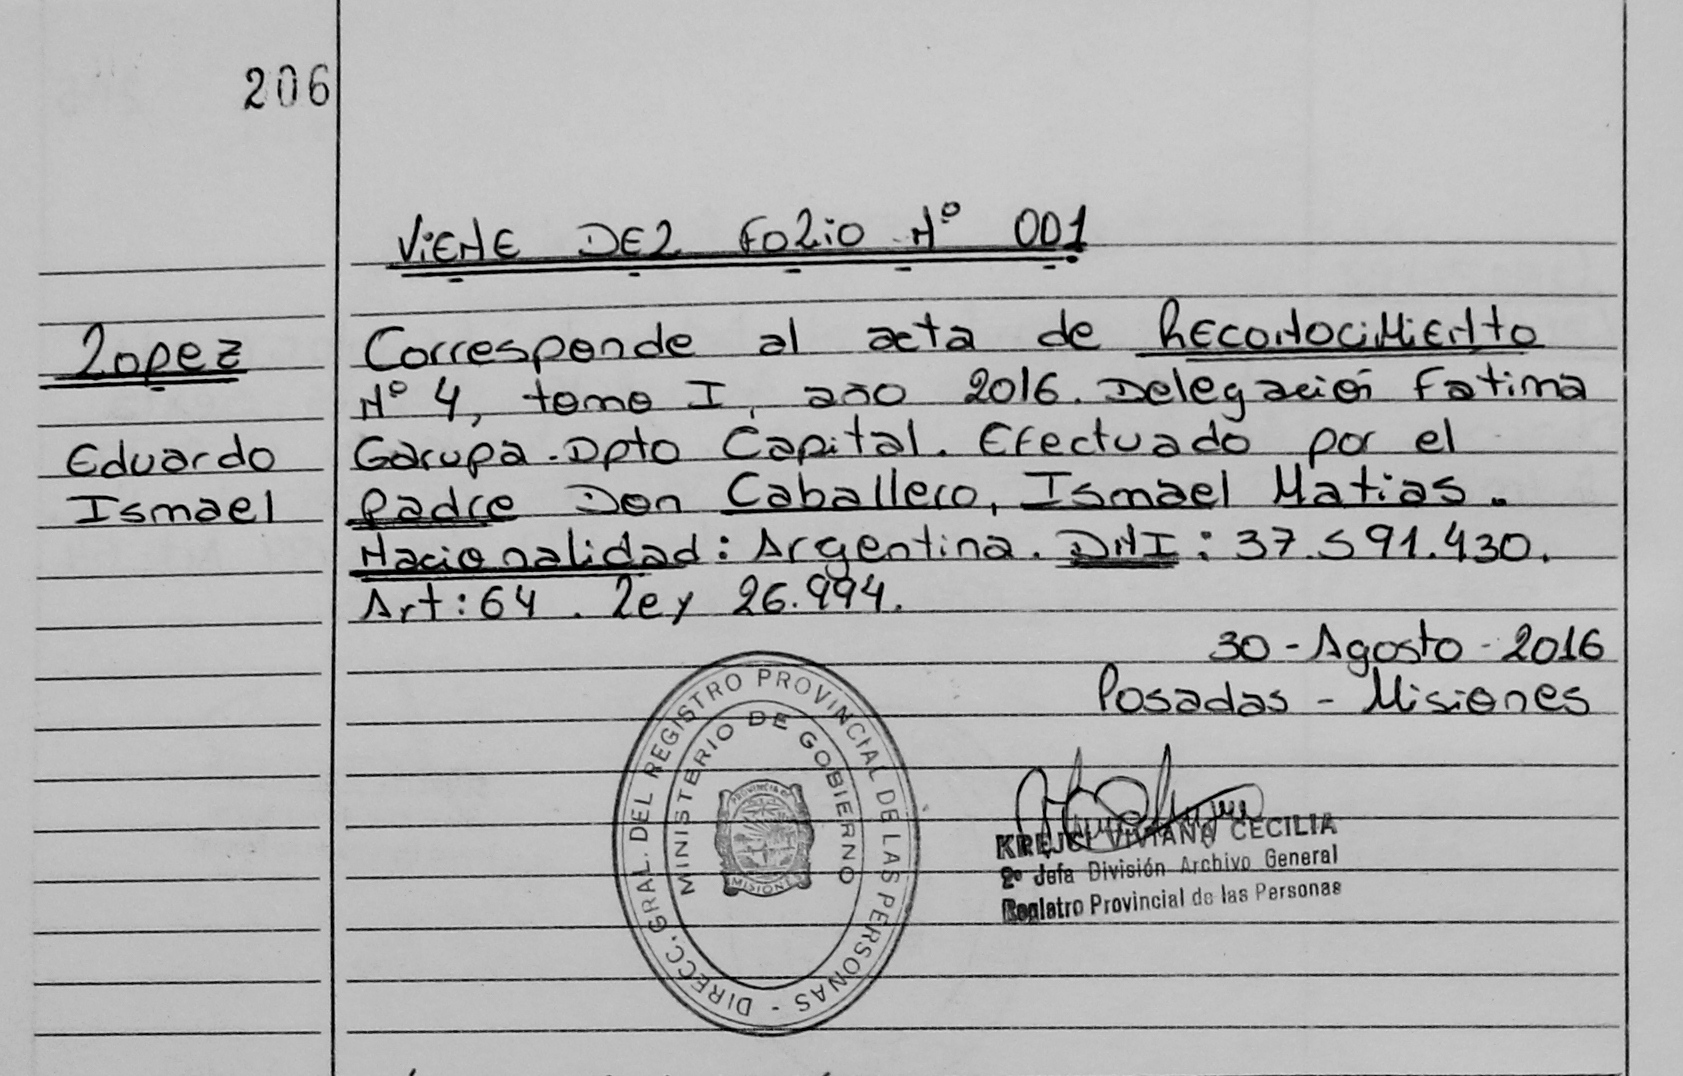 206
VIENE DEL FOLIO Nº 001
Lopez
Eduardo
Ismael
Corresponde al acta de Reconocimiento
Nº 4, tomo I, año 2016. Delegación Fatima
Garupa. Dpto Capital. Efectuado por el
padre Don Caballero, Ismael Matias.
Nacionalidad: Argentina. DNI: 37.591.430.
Art: 64. Ley 26.994.
30 - Agosto - 2016
Posadas - Misiones
DIRECC. GRAL. DEL REGISTRO PROVINCIAL DE LAS PERSONAS -
MINISTERIO DE GOBIERNO
PROVINCIA DE
MISIONES
KREJCI VIVIANA CECILIA
2º Jefa División Archivo General
Registro Provincial de las Personas